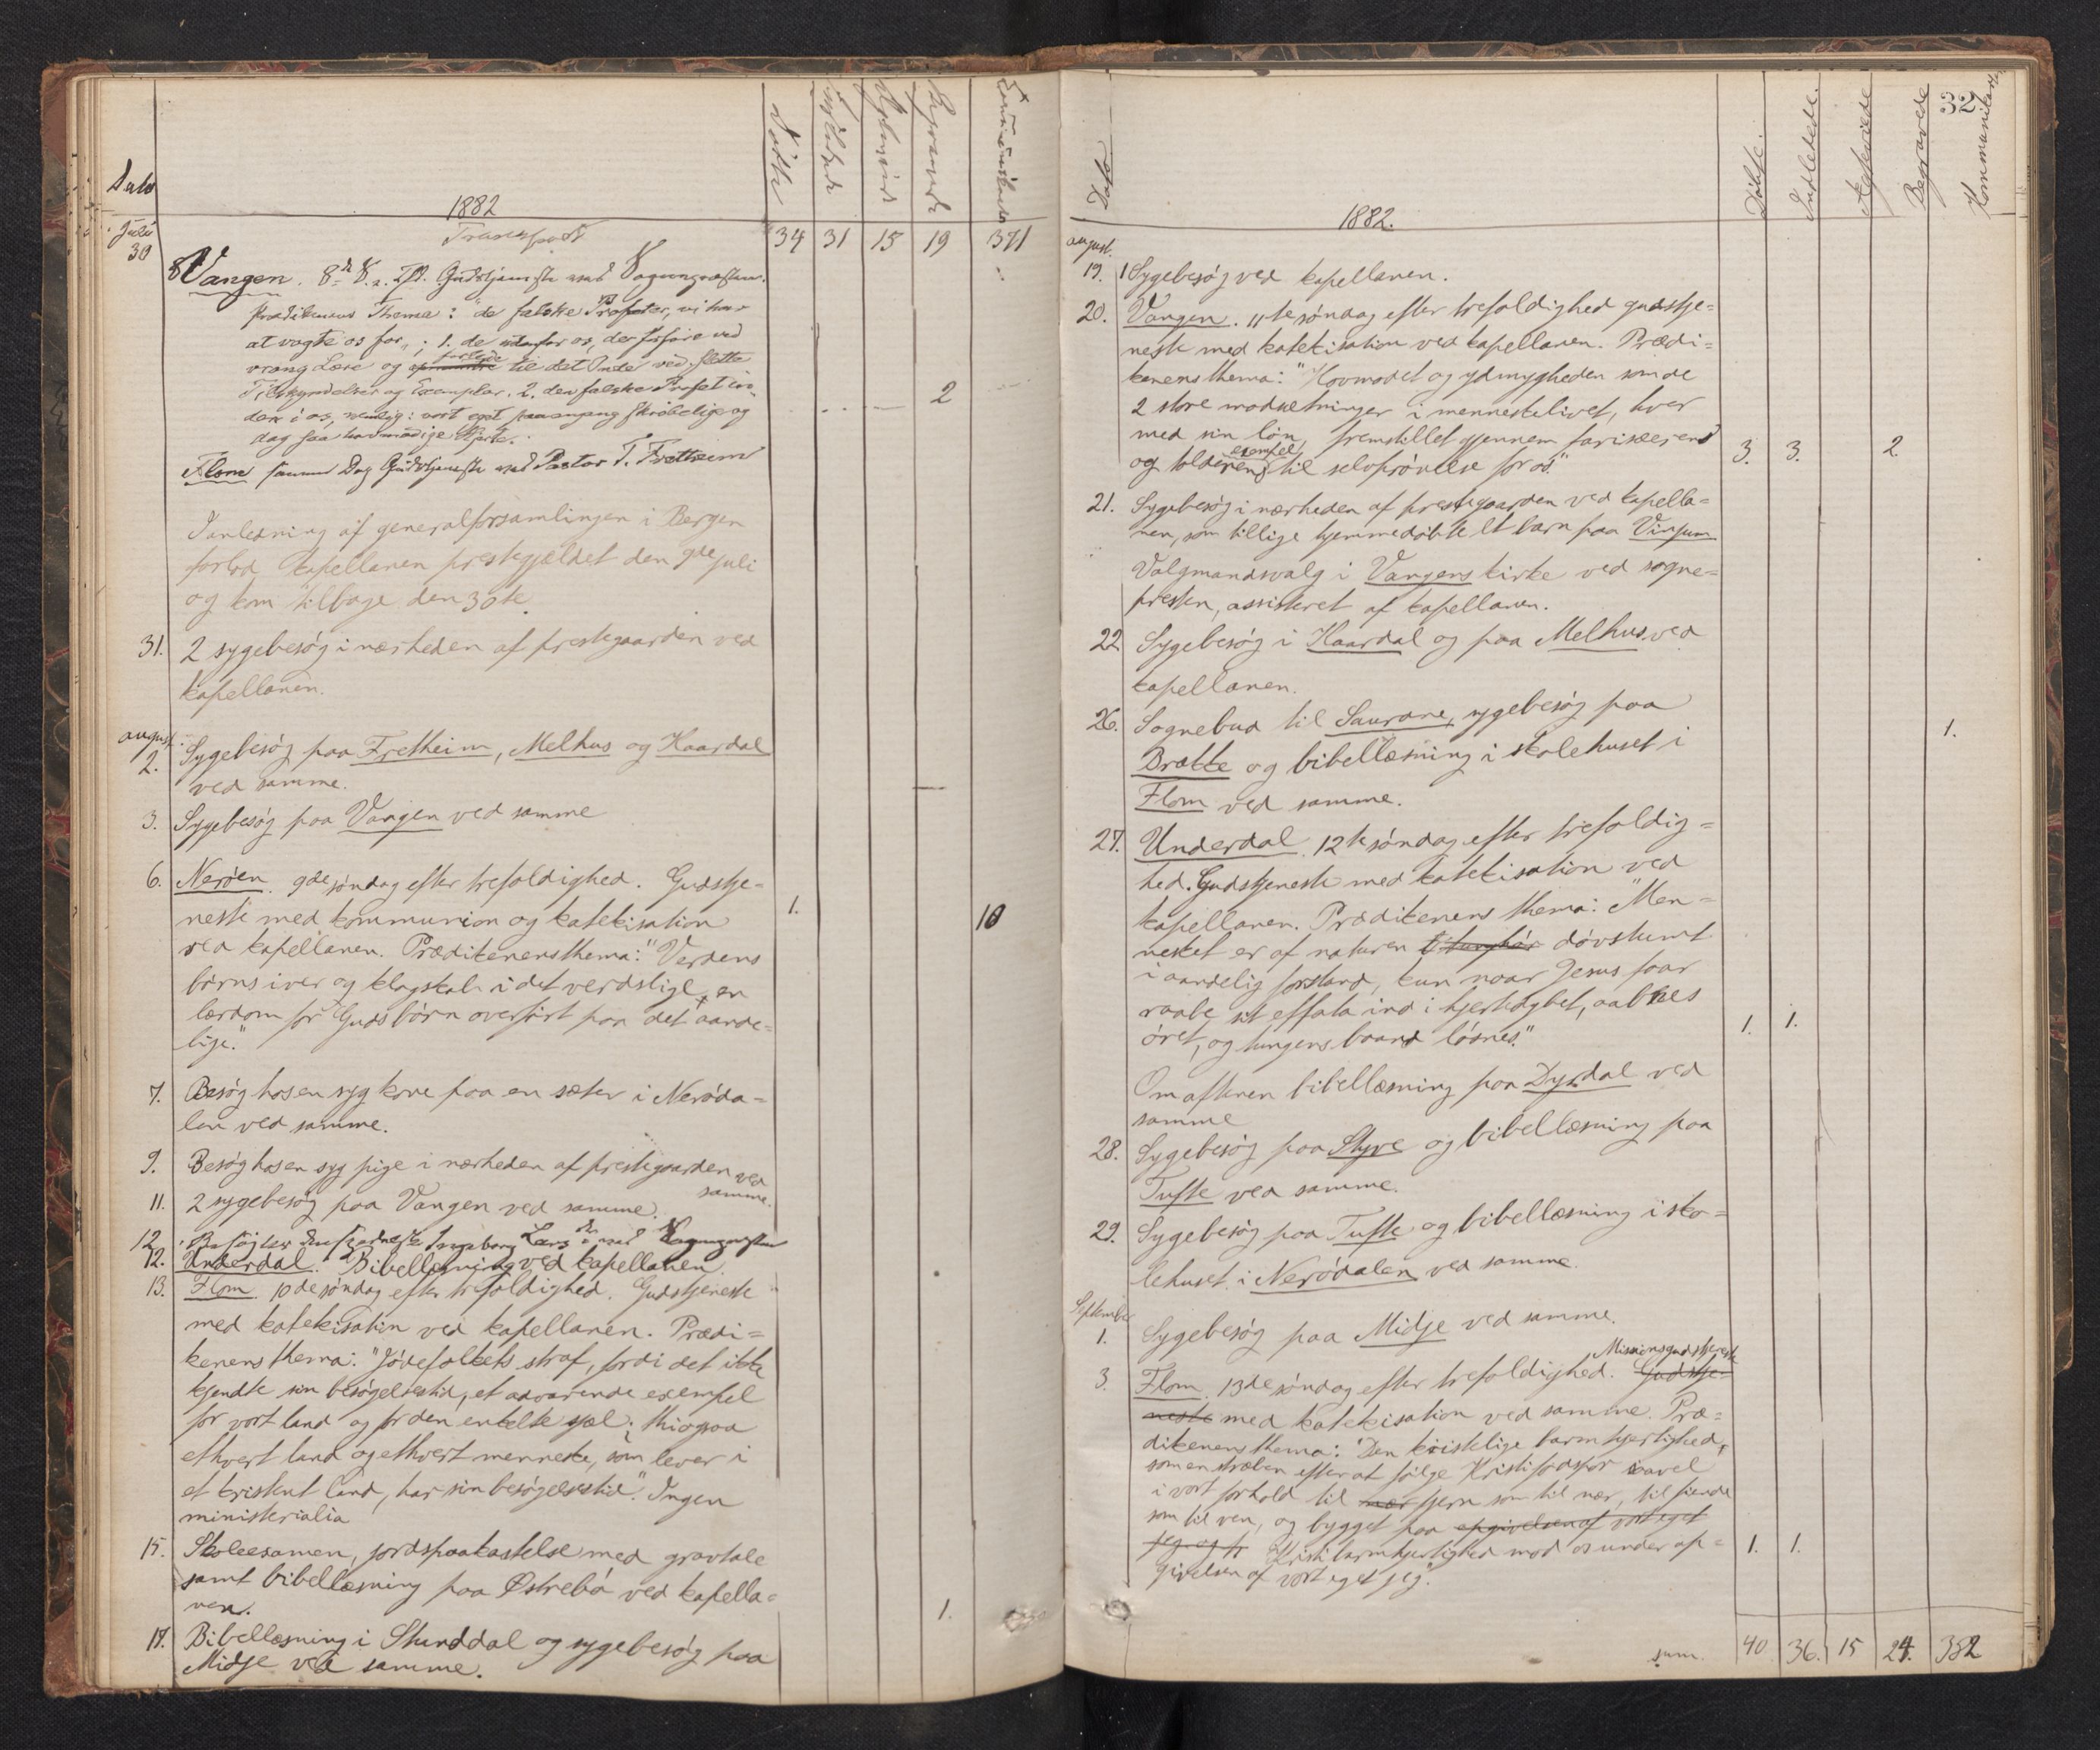 Dato
1882
Døbte
Indledede
Begravede
Juli
30
Transport
34 31 15 19 371
Vangen. 8de S. e. Tfd. Gudstjeneste ved Sognepræsten.
Prædikenens Thema: "de falske Profeter, vi har
at vogte os for"; 1. de udenfor os, der forføre ved
vrang Lære og forlede til det Onde ved slette
Tilskyndelser og Exempler. 2. den falske Profet in-
den i os, nemlig: vort eget skrøbelige og
dog saa hovmodige Hjerte.
2
Flom samme Dag Gudstjeneste ved Pastor T. Fretheim
I anledning af generalforsamlingen i Bergen
forlod kapellanen prestegjældet den 9de juli
og kom tilbage den 30te.
31. 2 sygebesøg i nærheden af prestegaarden ved
kapellanen.
august
2. Sygebesøg paa Fretheim, Melhus og Haardal
ved samme.
3. Sygebesøg paa Vangen ved samme
6. Nerøen. 9de søndag efter trefoldighed. Gudstje-
neste med kommunion og katekisation 1. 10
ved kapellanen. Prædikenens thema: "Verdens
børns iver og klogskab i det verdslige, en
lærdom for Guds børn overført paa det aande-
lige."
7. Besøg hos en syg kone paa en sæter i Nerøda-
len ved samme.
9. Besøg hos en syg pige i nærheden af prestegaarden ved
samme.
11. 2 sygebesøg paa Vangen ved samme.
12. Besøg hos Ingeborg Larsdr. ved Sognepresten
12. Underdal. Bibellesning ved kapellanen.
13. Flom 10de søndag efter trefoldighed. Gudstjeneste
med katekisation ved kapellanen. Prædi-
kenens thema: "Jødefolkets straf, fordi det ikke
kjendte sin besøgelsestid, et advarende exempel
for vort land og for den enkelte sjæl; thi ogsaa
ethvert land og ethvert menneske, som lever i
et kristent land, har sin besøgelsestid." Ingen
ministerialia
15. Skoleexamen, jordspaakastelse med gravtale
samt bibellæsning paa Østrebø ved kapella-
nen. 1.
17. Bibellæsning i Stunddal og sygebesøg paa
Midje ved samme.
32
Dato
1882.
Døbte.
Indledede.
Begravede
Kommunikanter
august.
19. 1 Sygebesøg ved kapellanen.
20. Vangen. 11te søndag efter trefoldighed gudstje-
neste med katekisation ved kapellanen. Prædi-
kenens thema: "Hovmodet og ydmygheden som de
2 store modsætninger i menneskelivet, hver
med sin løn, fremstillet gjennem farisæerens
og tolderens exempel til selvprøvelse for os." 3. 3. 2.
21. Sygebesøg i nærheden af prestegaarden ved kapella-
nen, som tillige hjemmedøbte et barn paa Vinjum
Valgmandsvalg i Vangens kirke ved sogne-
presten, assisteret af kapellanen.
22 Sygebesøg i Haardal og paa Melhus ved
kapellanen.
26. Sognebud til Saurane, sygebesøg paa 1.
Brække og bibellæsning i skolehuset i
Flom ved samme.
27. Underdal. 12te søndag efter trefoldig-
hed. Gudstjeneste med katekisation ved
kapellanen. Prædikenens thema: "Men-
nesket er af naturen tunghør døvstumt
i aandelig forstand, kun naar Jesus faar
raabe sit effata ind i hjertedybet, aabnes
øret, og tungens baand løsnes." 1. 1.
Om aftenen bibellæsning paa Dyrdal ved
samme
28. Sygebesøg paa Styve og bibellæsning paa
Tufte ved samme.
29. Sygebesøg paa Tufte og bibellæsning i sko-
lehuset i Nerødalen ved samme.
September
1. Sygebesøg paa Midje ved samme.
3. Flom. 13de søndag efter trefoldighed. Missionsgudstjeneste Gudstje-
neste med katekisation ved samme. Præ-
dikenens thema: "Den kristelige barmhjertighed,
som en stræben efter at følge Kristi fodspor saavel
i vort forhold til nær fjern som til nær, til fiende
som til ven, og bygget paa opgivelsen af vort eget
jeg og p Kristi barmhjertighed mod os under op- 1. 1.
givelsen af vort eget jeg".
sum. 40 36. 15 24. 382